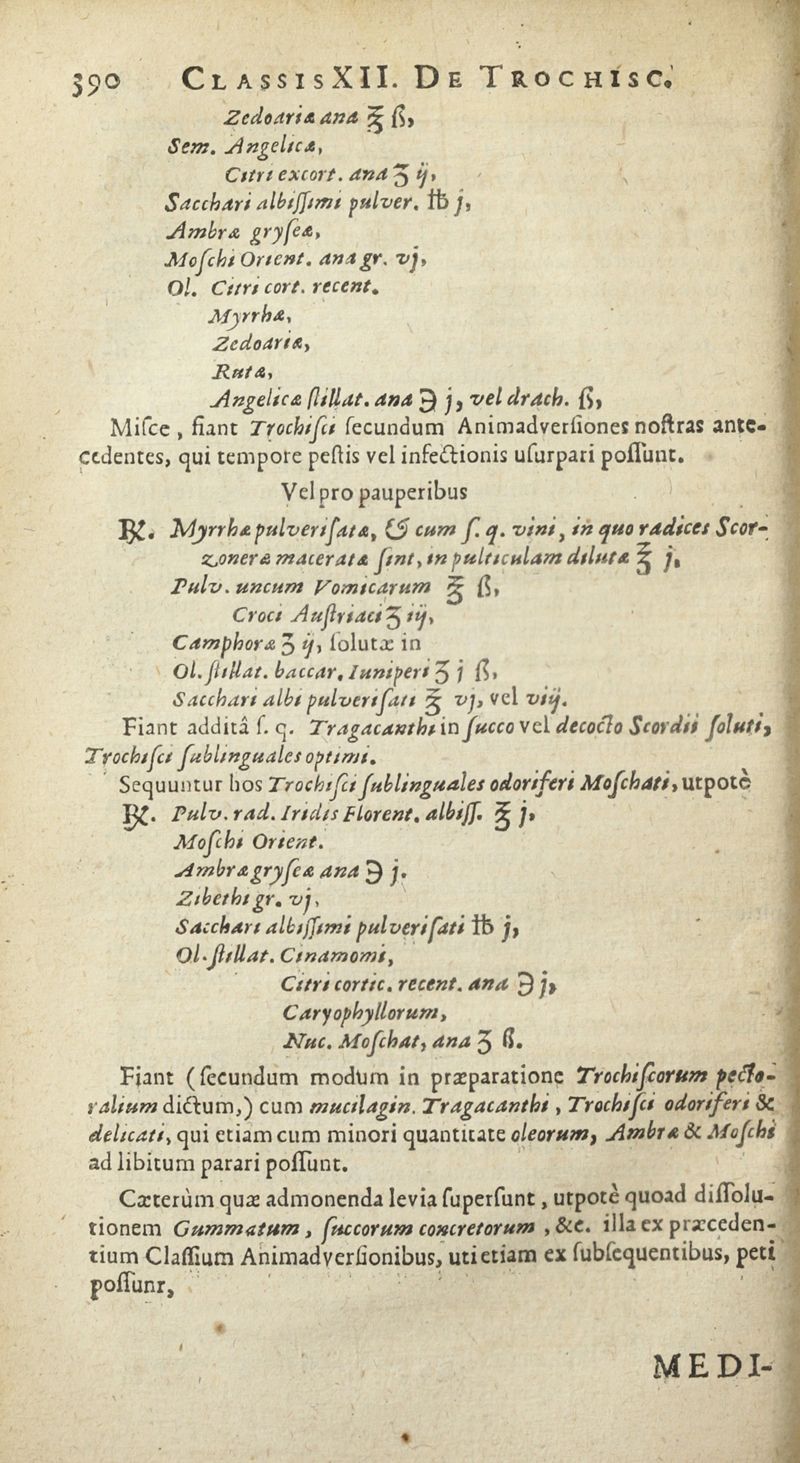 390 CLASSIS XII. DE TROCHISC.
Zedoariæ ana ℥ ß,
Sem. Angelicæ,
Citri excort. ana ʒ ij,
Sacchari albiſſimi pulver. ℔ j,
Ambræ gryſeæ,
Moſchi Orient. ana gr. vj,
Ol. Citri cort. recent.
Myrrhæ,
Zedoariæ,
Rutæ,
Angelicæ ſtillat. ana ℈ j, vel drach. ß,
Miſce, fiant Trochiſci ſecundum Animadverſiones noſtras ante-
cedentes, qui tempore peſtis vel infectionis uſurpari poſſunt.
Vel pro pauperibus
℞. Myrrhæ pulveriſatæ, & cum ſ. q. vini, in quo radices Scor-
zoneræ maceratæ ſint, in pulticulam dilutæ ℥ j,
Pulv. uncum Vomicarum ℥ ß,
Croci Auſtriaci ʒ iij,
Camphoræ ʒ ij, ſolutæ in
Ol. ſtillat. baccar. Iuniperi ʒ j ß,
Sacchari albi pulveriſati ℥ vj, vel viij.
Fiant additâ ſ. q. Tragacanthi in ſucco vel decocto Scordii ſoluti,
Trochiſci ſublinguales optimi.
Sequuntur hos Trochiſci ſublinguales odoriferi Moſchati, utpotè
℞. Pulv. rad. Iridis Florent. albiſſ. ℥ j,
Moſchi Orient.
Ambræ gryſeæ ana ℈ j.
Zibethi gr. vj,
Sacchari albiſſimi pulveriſati ℔ j,
Ol. ſtillat. Cinamomi,
Citri cortic. recent. ana ℈ j,
Caryophyllorum,
Nuc. Moſchat, ana ʒ ß.
Fiant (ſecundum modum in præparatione Trochiſcorum pecto-
ralium dictum,) cum mucilagin. Tragacanthi, Trochiſci odoriferi &
delicati, qui etiam cum minori quantitate oleorum, Ambræ & Moſchi
ad libitum parari poſſunt.
Cæterùm quæ admonenda levia ſuperſunt, utpotè quoad diſſolu-
tionem Gummatum, ſuccorum concretorum, &c. illa ex præceden-
tium Claſſium Animadverſionibus, uti etiam ex ſubſequentibus, peti
poſſunr,
MEDI-